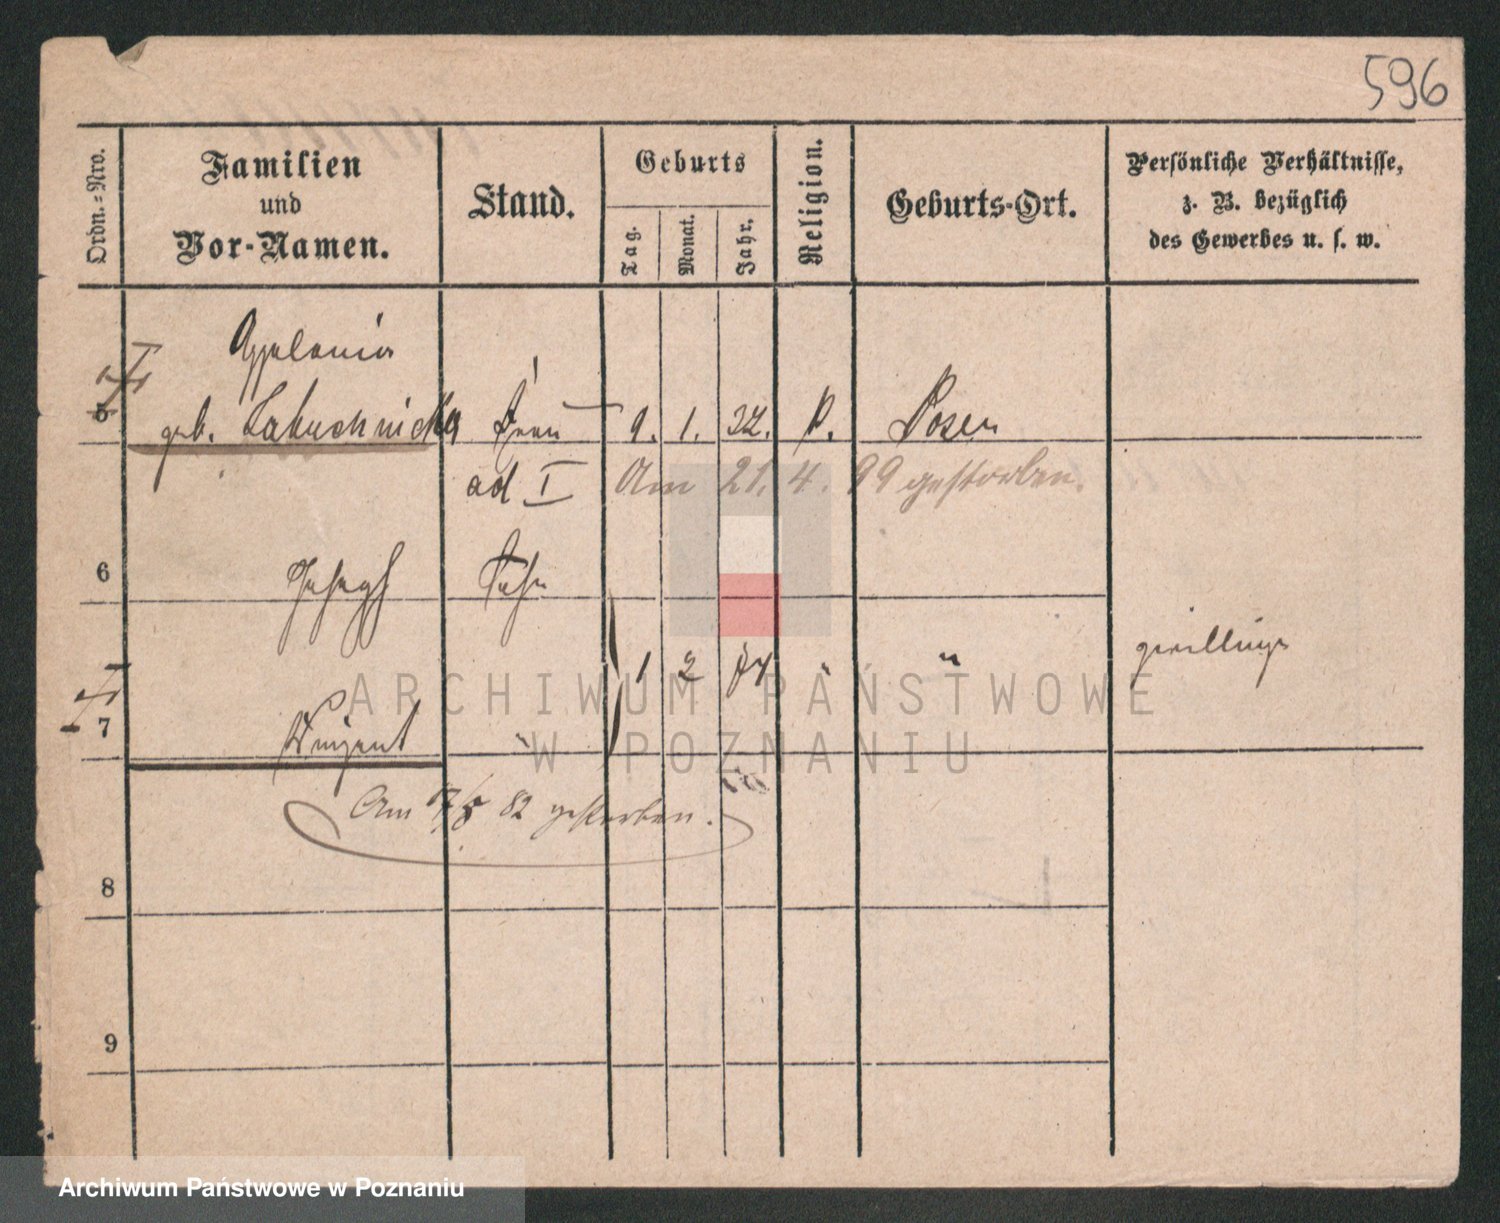 596
Ordn.=Nro.
Familien
und
Vor-Namen.
Stand.
Geburts
Tag.
Monat.
Jahr.
Religion.
Geburts-Ort.
Persönliche Verhältnisse,
z. B. bezüglich
des Gewerbes u. s. w.
Appolonia
5 geb. Labuchnicka Frau 9. 1. 32. K. Posen
ad I Am 21. 4. 99 gestorben.
6 Joseph Sohn
1 2 74 " " zwillinge
7 Vinzent "
Am 17/8 82 gestorben.
8
9
ARCHIWUM PAŃSTWOWE
W POZNANIU
Archiwum Państwowe w Poznaniu